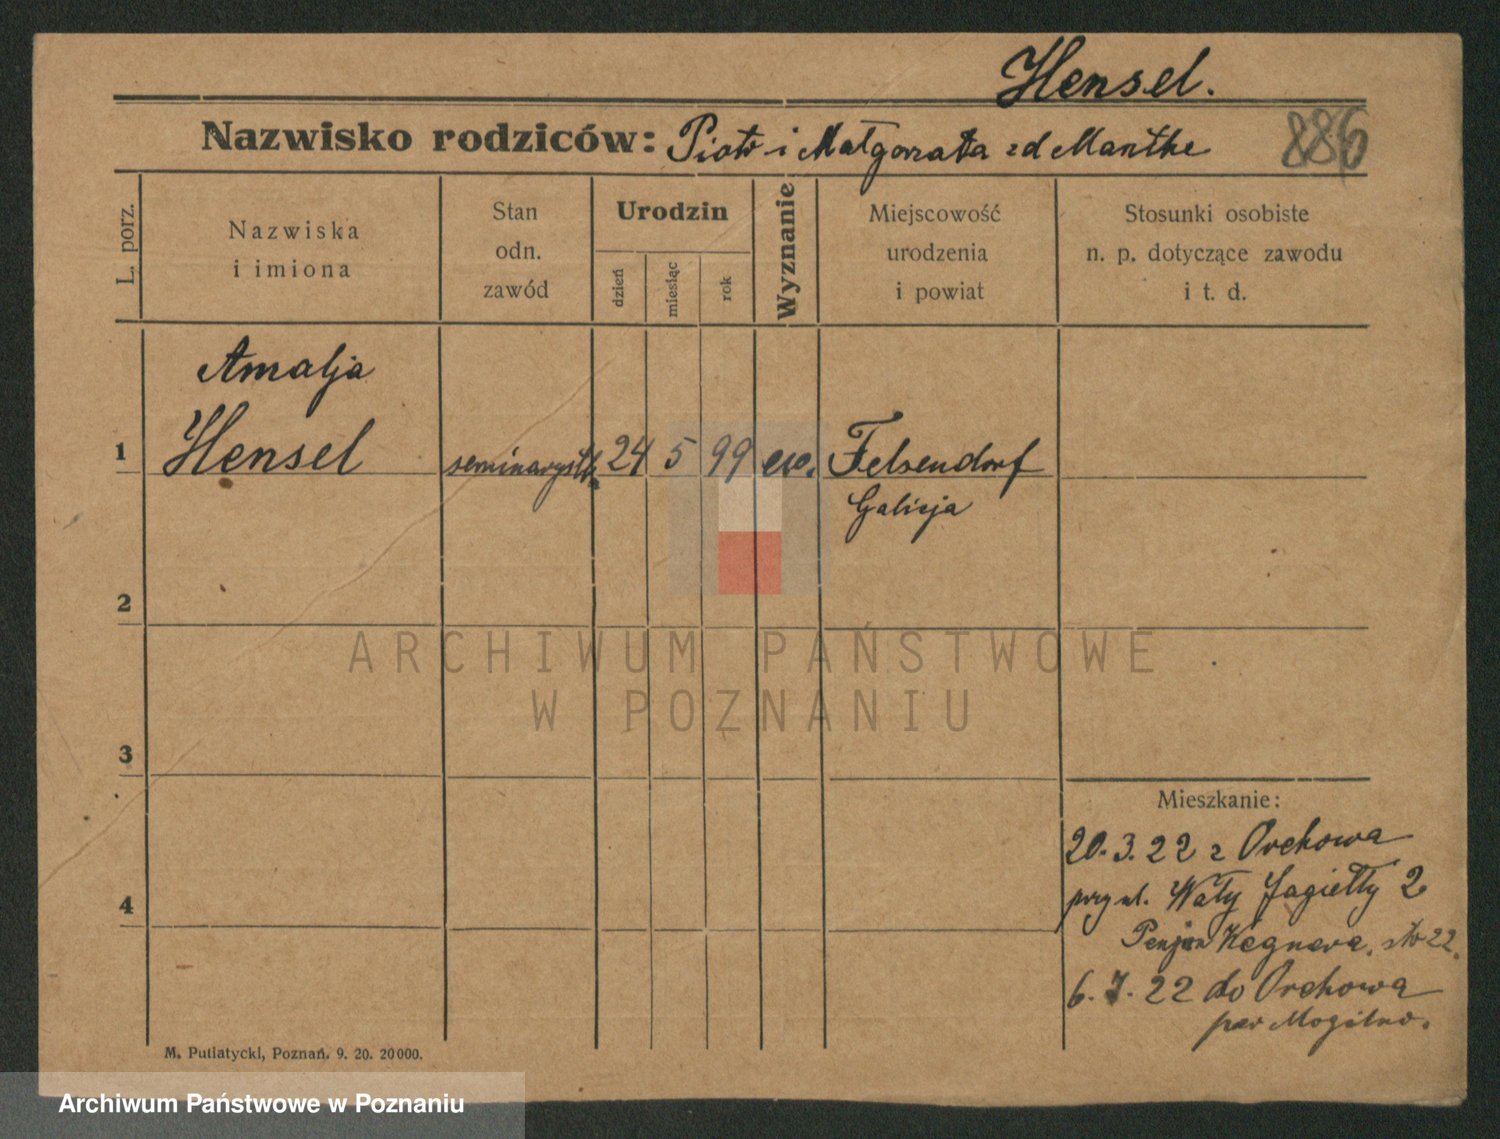 Hensel.
Nazwisko rodziców: Piotr i Małgorzata zd Manthe
886
L. porz.
Nazwiska
i imiona
Stan
odn.
zawód
Urodzin
dzień
miesiąc
rok
Wyznanie
Miejscowość
urodzenia
i powiat
Stosunki osobiste
n. p. dotyczące zawodu
i t. d.
Amalja
1 Hensel seminarystka 24 5 99 ew. Felsendorf
Galicja
2
ARCHIWUM PAŃSTWOWE
W POZNANIU
3
Mieszkanie:
20.3.22 z Orchowa
4 przy ul. Wały Jagiełły 2
Penjon
6.7.22 do Orchowa
pow Mogilno.
M. Putiatycki, Poznań. 9. 20. 20000.
Archiwum Państwowe w Poznaniu